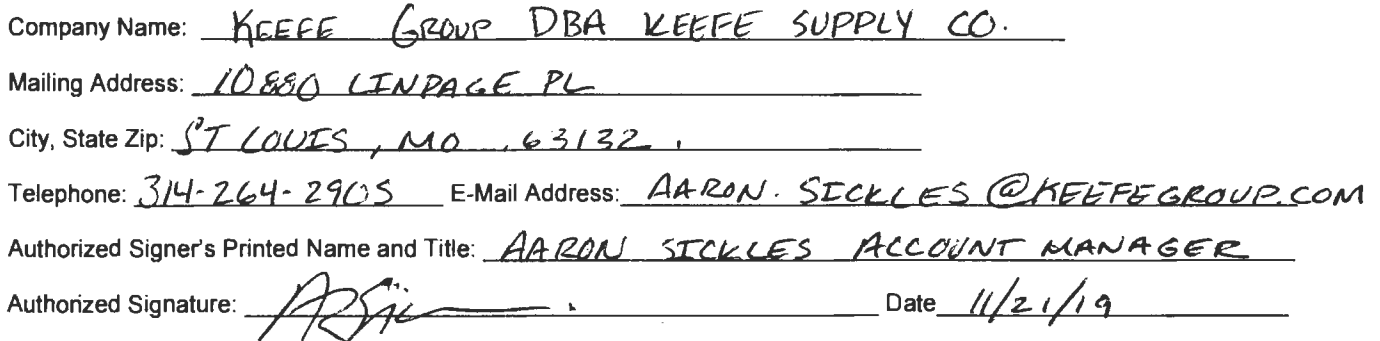 Company Name: KEEFE GROUP DBA KEEFE SUPPLY CO.
Mailing Address: 10880 LINPAGE PL
City, State Zip: ST LOUIS, MO, 63132.
Telephone: 314-264-2905 E-Mail Address: AARON.SICKLES@KEEFEGROUP.COM
Authorized Signer's Printed Name and Title: AARON SICKLES ACCOUNT MANAGER
Authorized Signature: Date 11/21/19